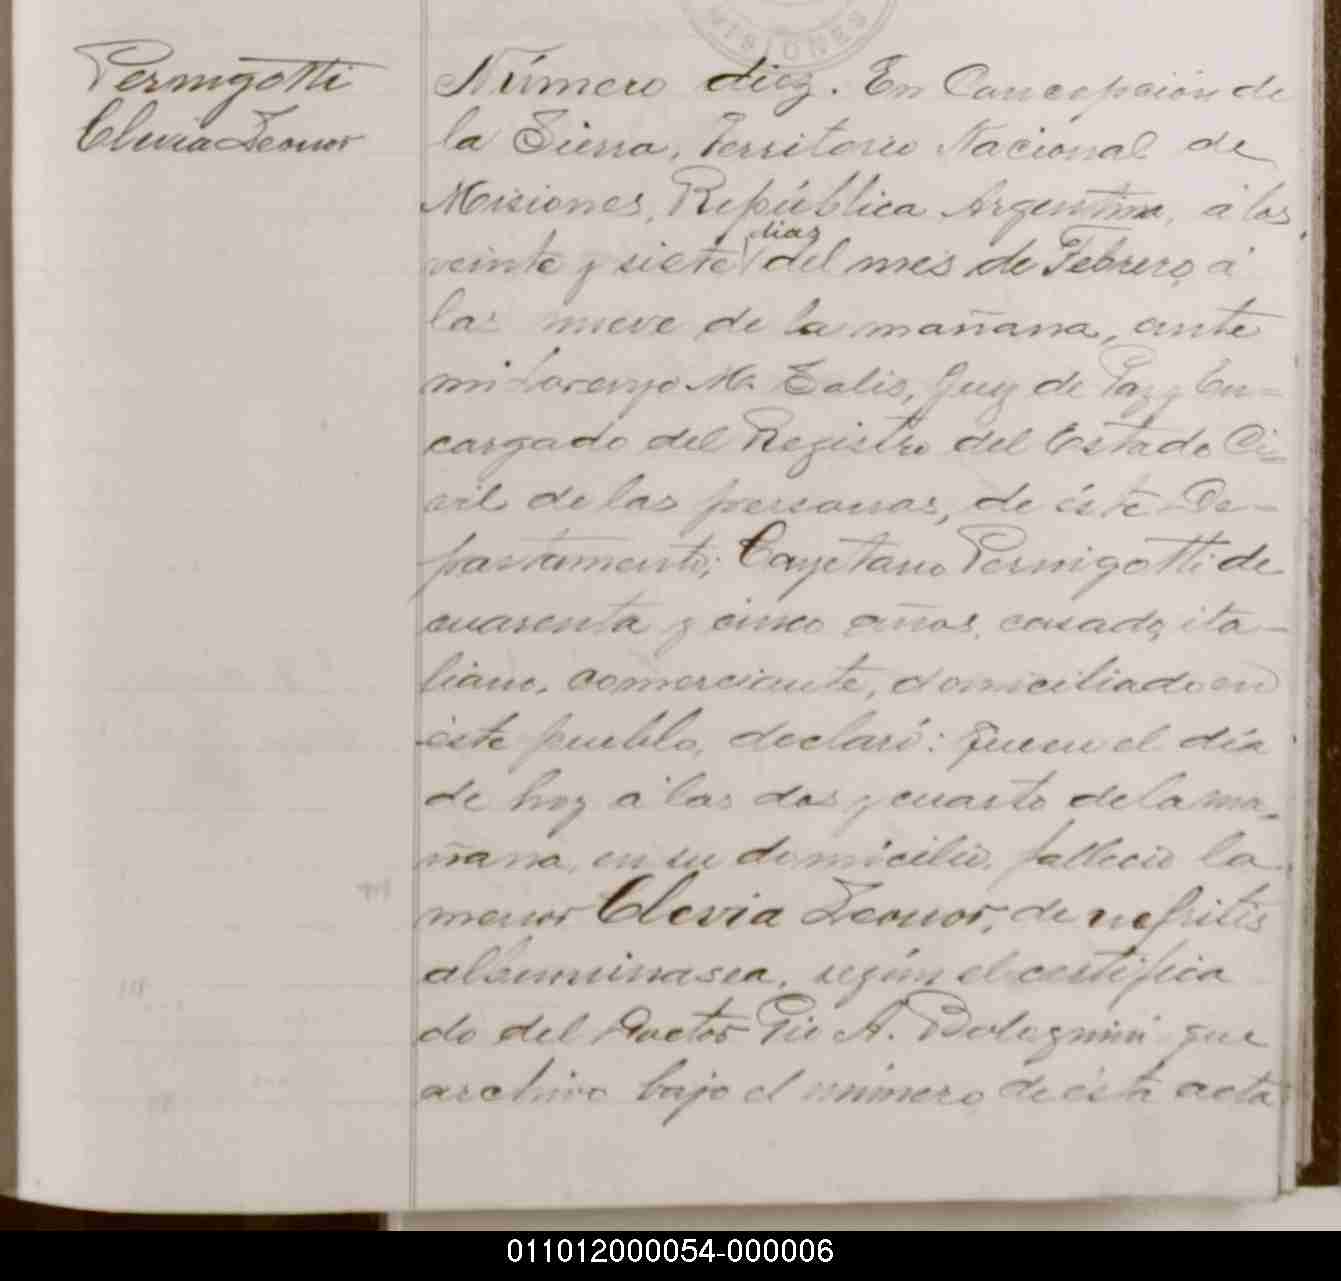 MISIONES
Pernigotti
Clevia Leonor
Número diez. En Concepción de
la Sierra, Territorio Nacional de
Misiones, República Argentina, á los
veinte y siete dias del mes de Febrero, á
las nueve de la mañana, ante
mi Lorenzo M. Solis, Juez de Paz y En-
cargado del Registro del Estado Ci-
vil de las personas, de éste De-
partamento; Cayetano Pernigotti de
cuarenta y cinco años, casado, ita-
liano, comerciante, domiciliado en
éste pueblo, declaró: Que en el día
de hoy á las dos y cuarto de la ma-
ñana, en su domicilio, falleció la
menor Clevia Leonor, de nefritis
albuminosa, según el certifica
do del Doctor Pio A. Bolognini que
archivo bajo el número de ésta acta
011012000054-000006